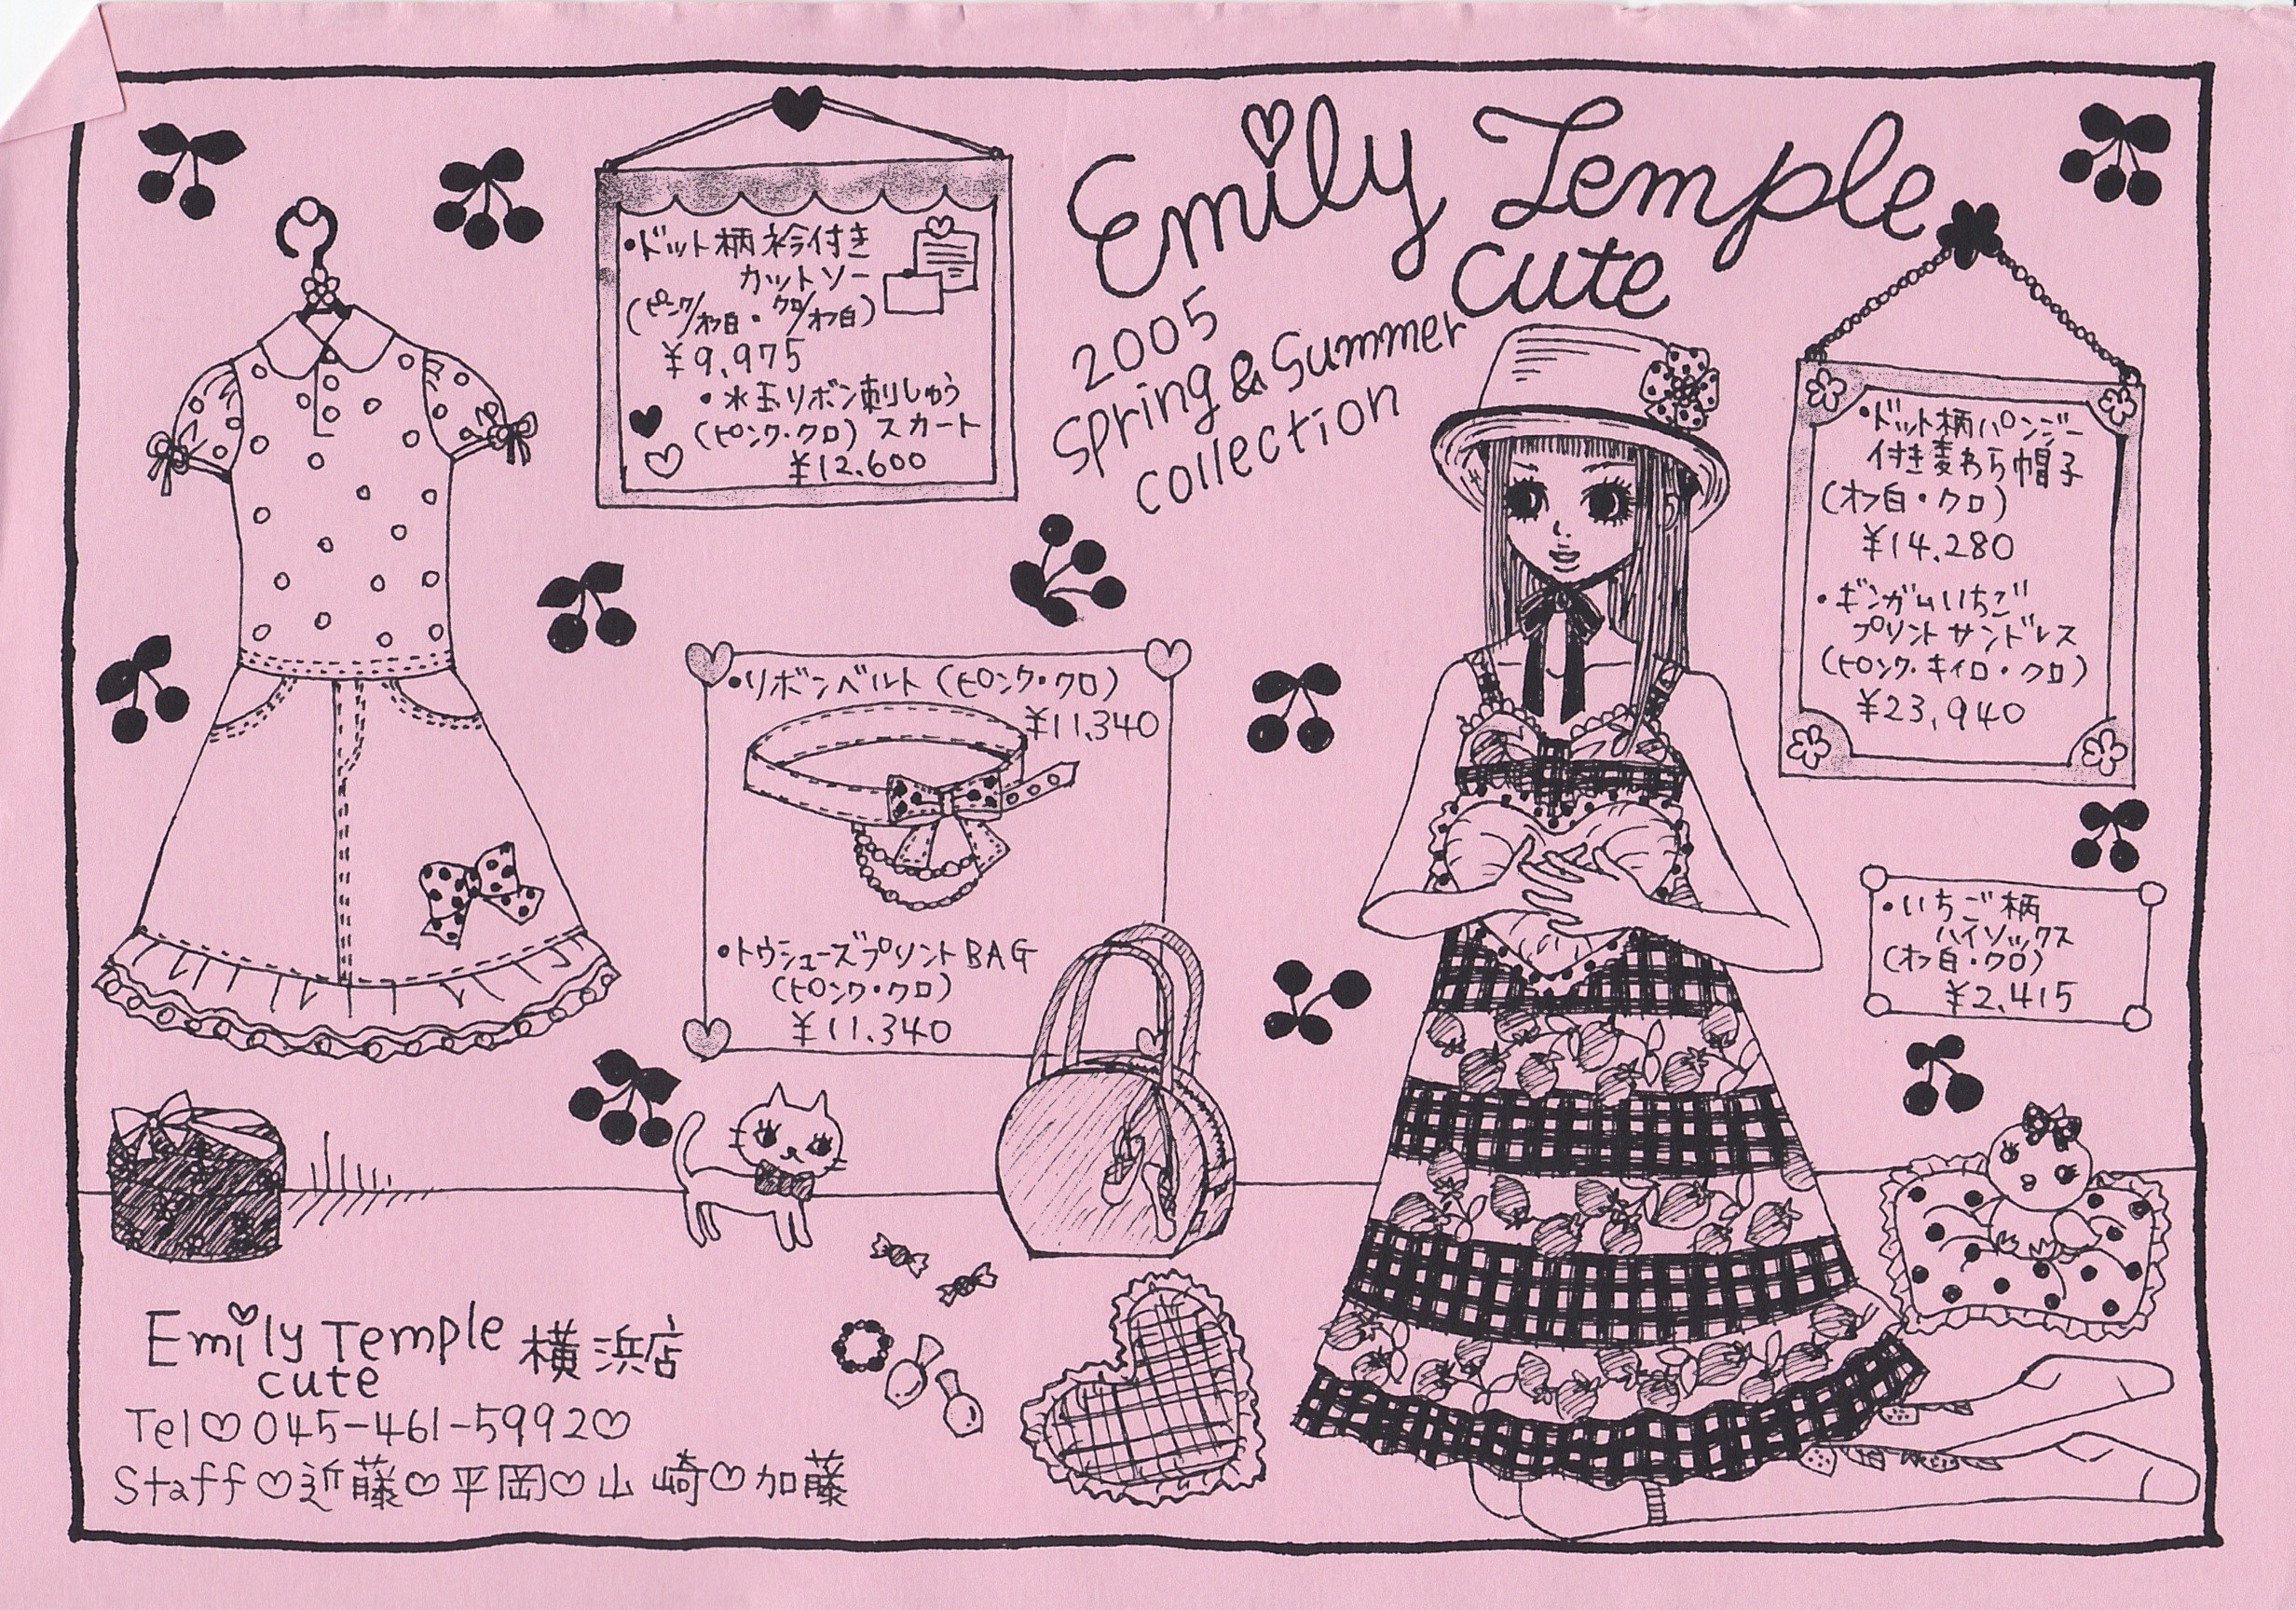 Emily Temple
cute
2005
Spring & Summer
collection
・ドット柄衿付き
カットソー
(ピンク/オフ白・クロ/オフ白)
¥9,975
・水玉リボン刺しゅう
(ピンク・クロ) スカート
¥12.600
・ドット柄パンジー
付き麦わら帽子
(オフ白・クロ)
¥14.280
・ギンガムいちご
プリントサンドレス
(ピンク・キイロ・クロ)
¥23,940
・リボンベルト (ピンク・クロ)
¥11.340
・トウシューズプリントBAG
(ピンク・クロ)
¥11.340
・いちご柄
ハイソックス
(オフ白・クロ)
¥2.415
Emily Temple 横浜店
cute
Tel♡045-461-5992♡
Staff♡近藤♡平岡♡山崎♡加藤